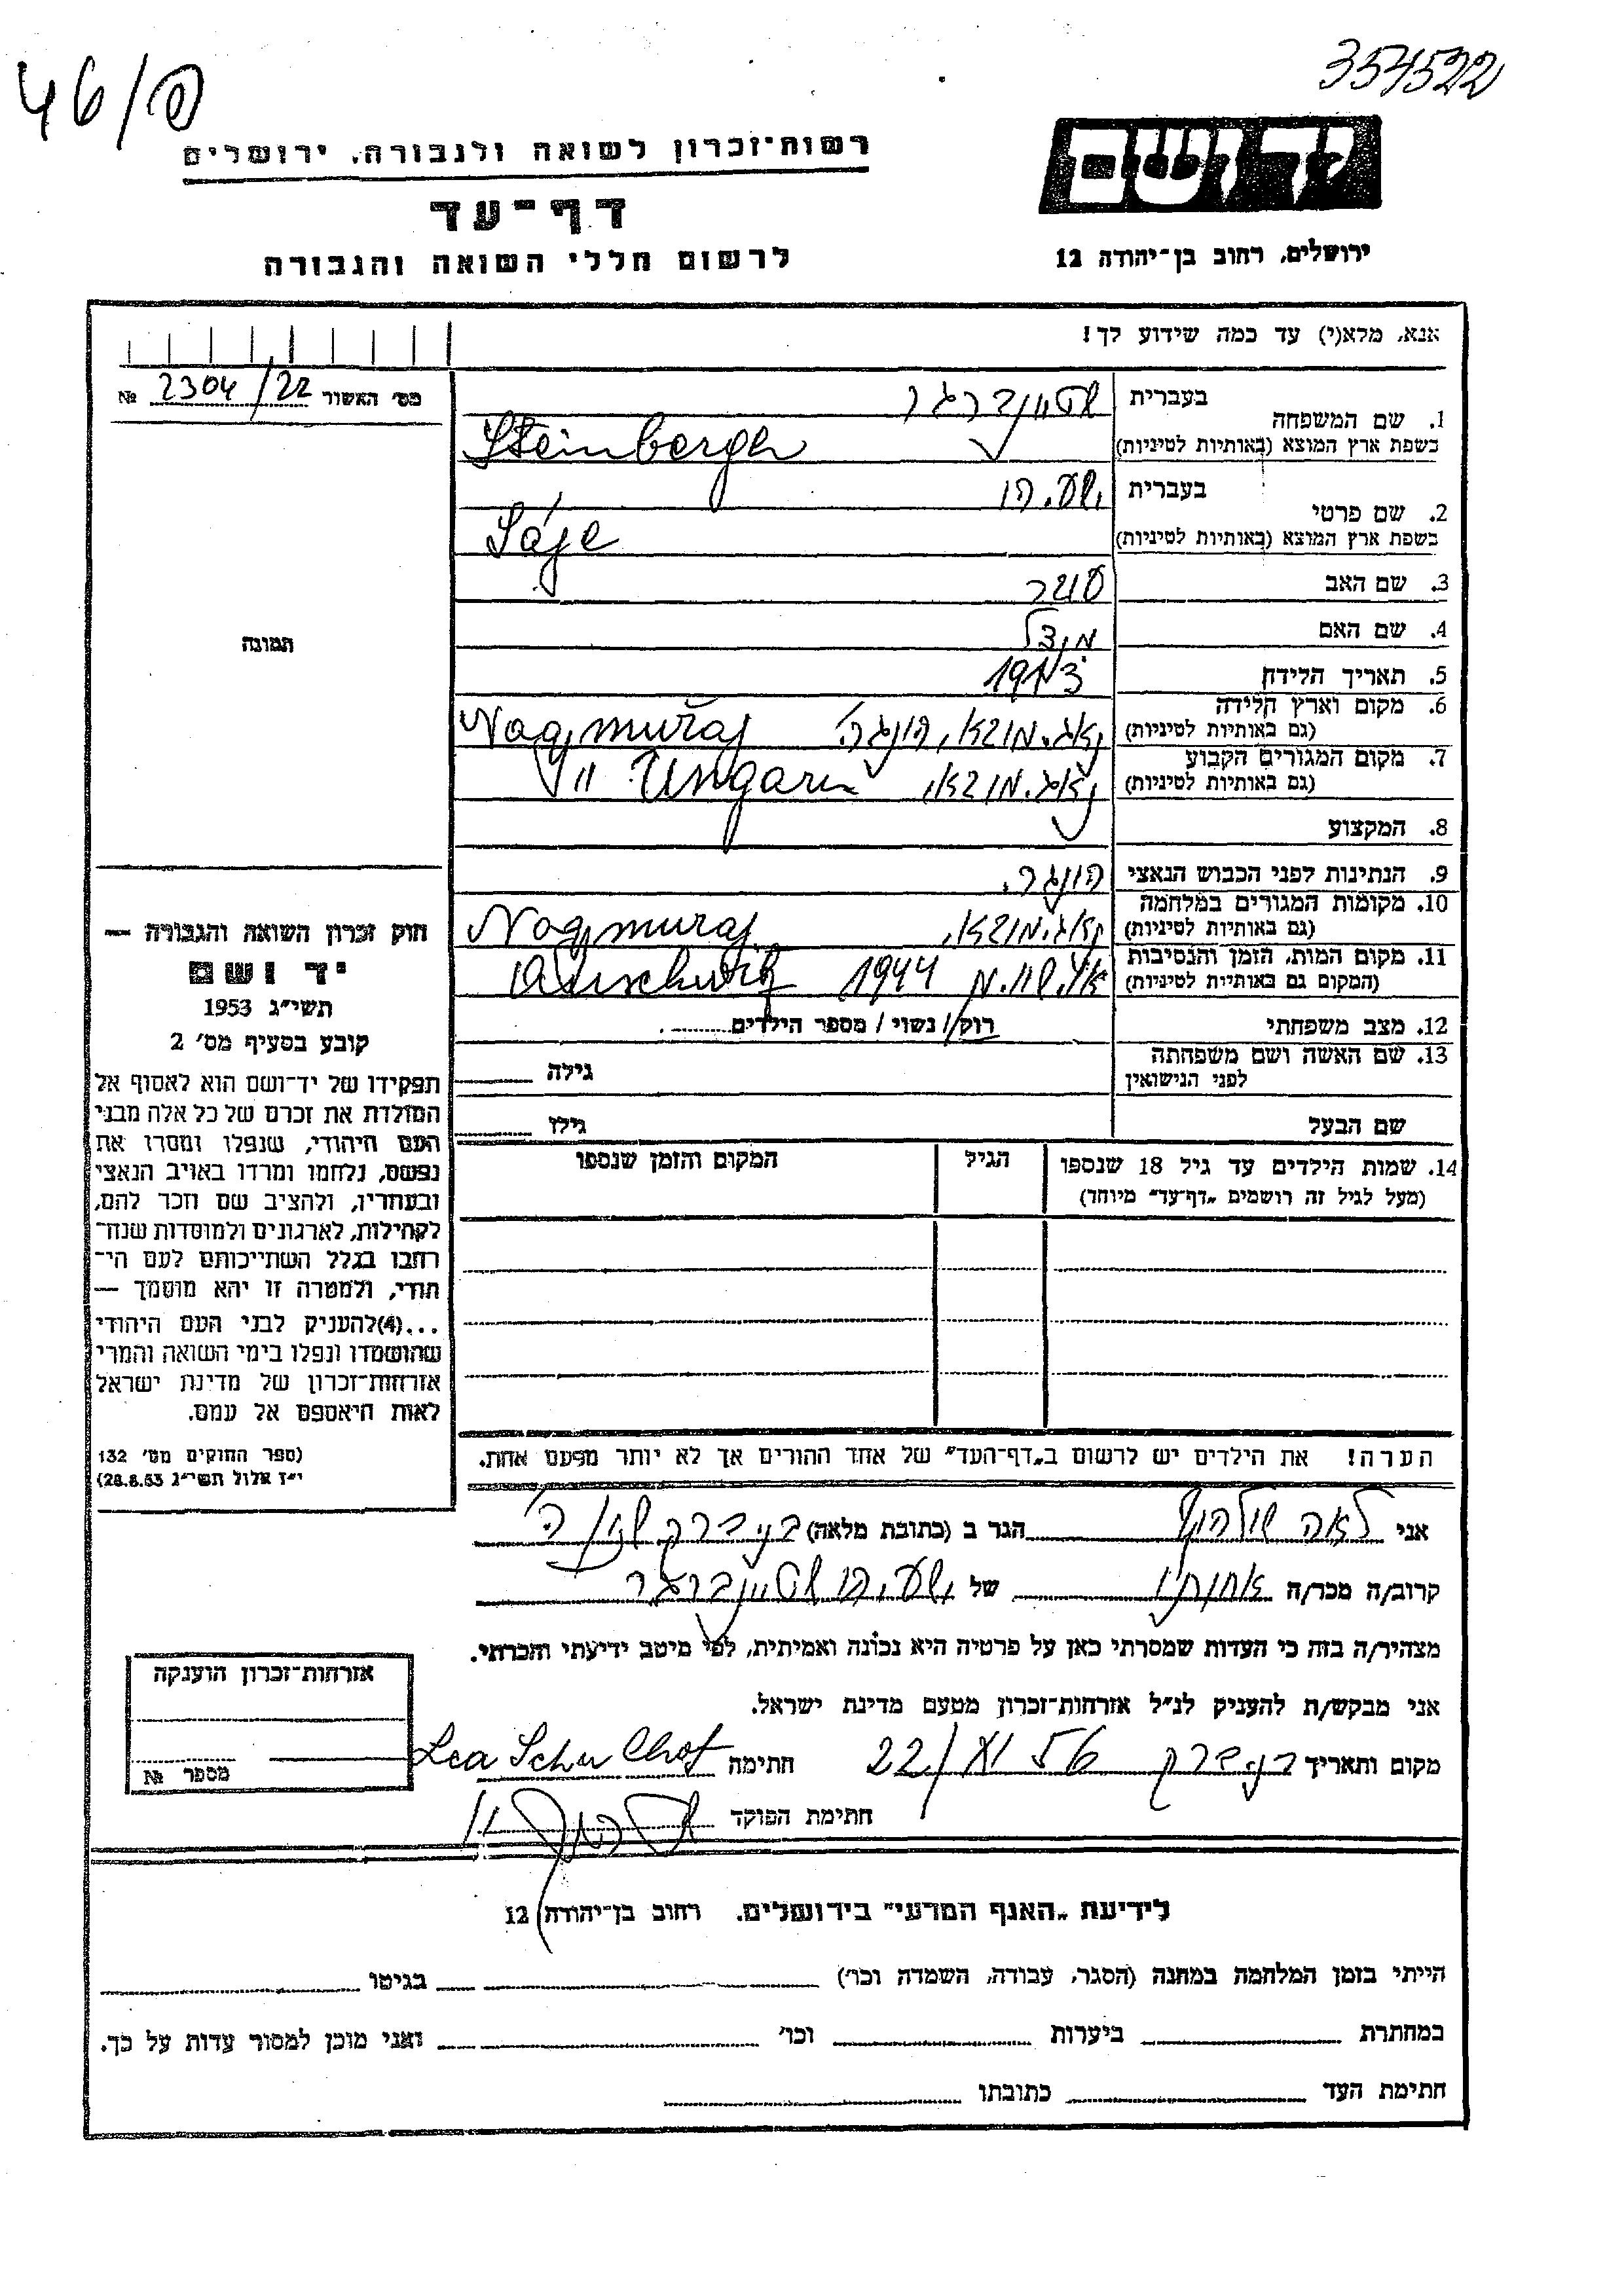 46/פ
354522
רשות־זכרון לשואה ולגבורה, ירושלים
דף־עד
לרשום חללי השואה והגבורה
יד ושם
ירושלים, רחוב בן־יהודה 12
אנא, מלא(י) עד כמה שידוע לך!
מס׳ האשור 2304/22 №
תמונה
1. שם המשפחה
בעברית שטיינברגר
בשפת ארץ המוצא (באותיות לטיניות) Steinbergh
2. שם פרטי
בעברית ישעיהו
בשפת ארץ המוצא (באותיות לטיניות) Sáje
3. שם האב
4. שם האם
5. תאריך הלידה
6. מקום וארץ הלידה
(גם באותיות לטיניות) הונגריה
7. מקום המגורים הקבוע
(גם באותיות לטיניות) " Ungarn
8. המקצוע
9. הנתינות לפני הכבוש הנאצי הונגרי
10. מקומות המגורים במלחמה
(גם באותיות לטיניות) Nagymuraj
11. מקום המות, הזמן והנסיבות
(המקום גם באותיות לטיניות) 1944 Auschwitz
12. מצב משפחתי רווק / נשוי / מספר הילדים
13. שם האשה ושם משפחתה
לפני הנישואין גילה
שם הבעל גילו
14. שמות הילדים עד גיל 18 שנספו הגיל המקום והזמן שנספו
(מעל לגיל זה רושמים „דף־עד״ מיוחד)
הערה! את הילדים יש לרשום ב„דף־העד״ של אחד ההורים אך לא יותר מפעם אחת.
חוק זכרון השואה והגבורה —
יד ושם
תשי״ג 1953
קובע בסעיף מס׳ 2
תפקידו של יד־ושם הוא לאסוף אל
המולדת את זכרם של כל אלה מבני
העם היהודי, שנפלו ומסרו את
נפשם, נלחמו ומרדו באויב הנאצי
ובעוזריו, ולהציב שם וזכר להם,
לקהילות, לארגונים ולמוסדות שנח־
רבו בגלל השתייכותם לעם הי־
הודי, ולמטרה זו יהא מוסמך —
...(4) להעניק לבני העם היהודי
שהושמדו ונפלו בימי השואה והמרי
אזרחות־זכרון של מדינת ישראל
לאות היאספם אל עמם.
(ספר החוקים מס׳ 132
י״ז אלול תשי״ג 28.8.53)
אני לאה שולהוף הגר ב (כתובת מלאה) בני ברק
קרוב/ה מכר/ה אחותו של ישעיהו שטיינברגר
מצהיר/ה בזה כי העדות שמסרתי כאן על פרטיה היא נכונה ואמיתית, לפי מיטב ידיעתי והכרתי.
אני מבקש/ת להעניק לנ״ל אזרחות־זכרון מטעם מדינת ישראל.
מקום ותאריך בני ברק 22/ 56 חתימה Lea Schullhof
חתימת הפוקד
אזרחות־זכרון הוענקה
מספר №
לידיעת „האגף המדעי״ בירושלים, רחוב בן־יהודה 12
הייתי בזמן המלחמה במחנה (הסגר, עבודה, השמדה וכו׳) בגיטו
במחתרת ביערות וכו׳ ואני מוכן למסור עדות על כך.
חתימת העד כתובתו